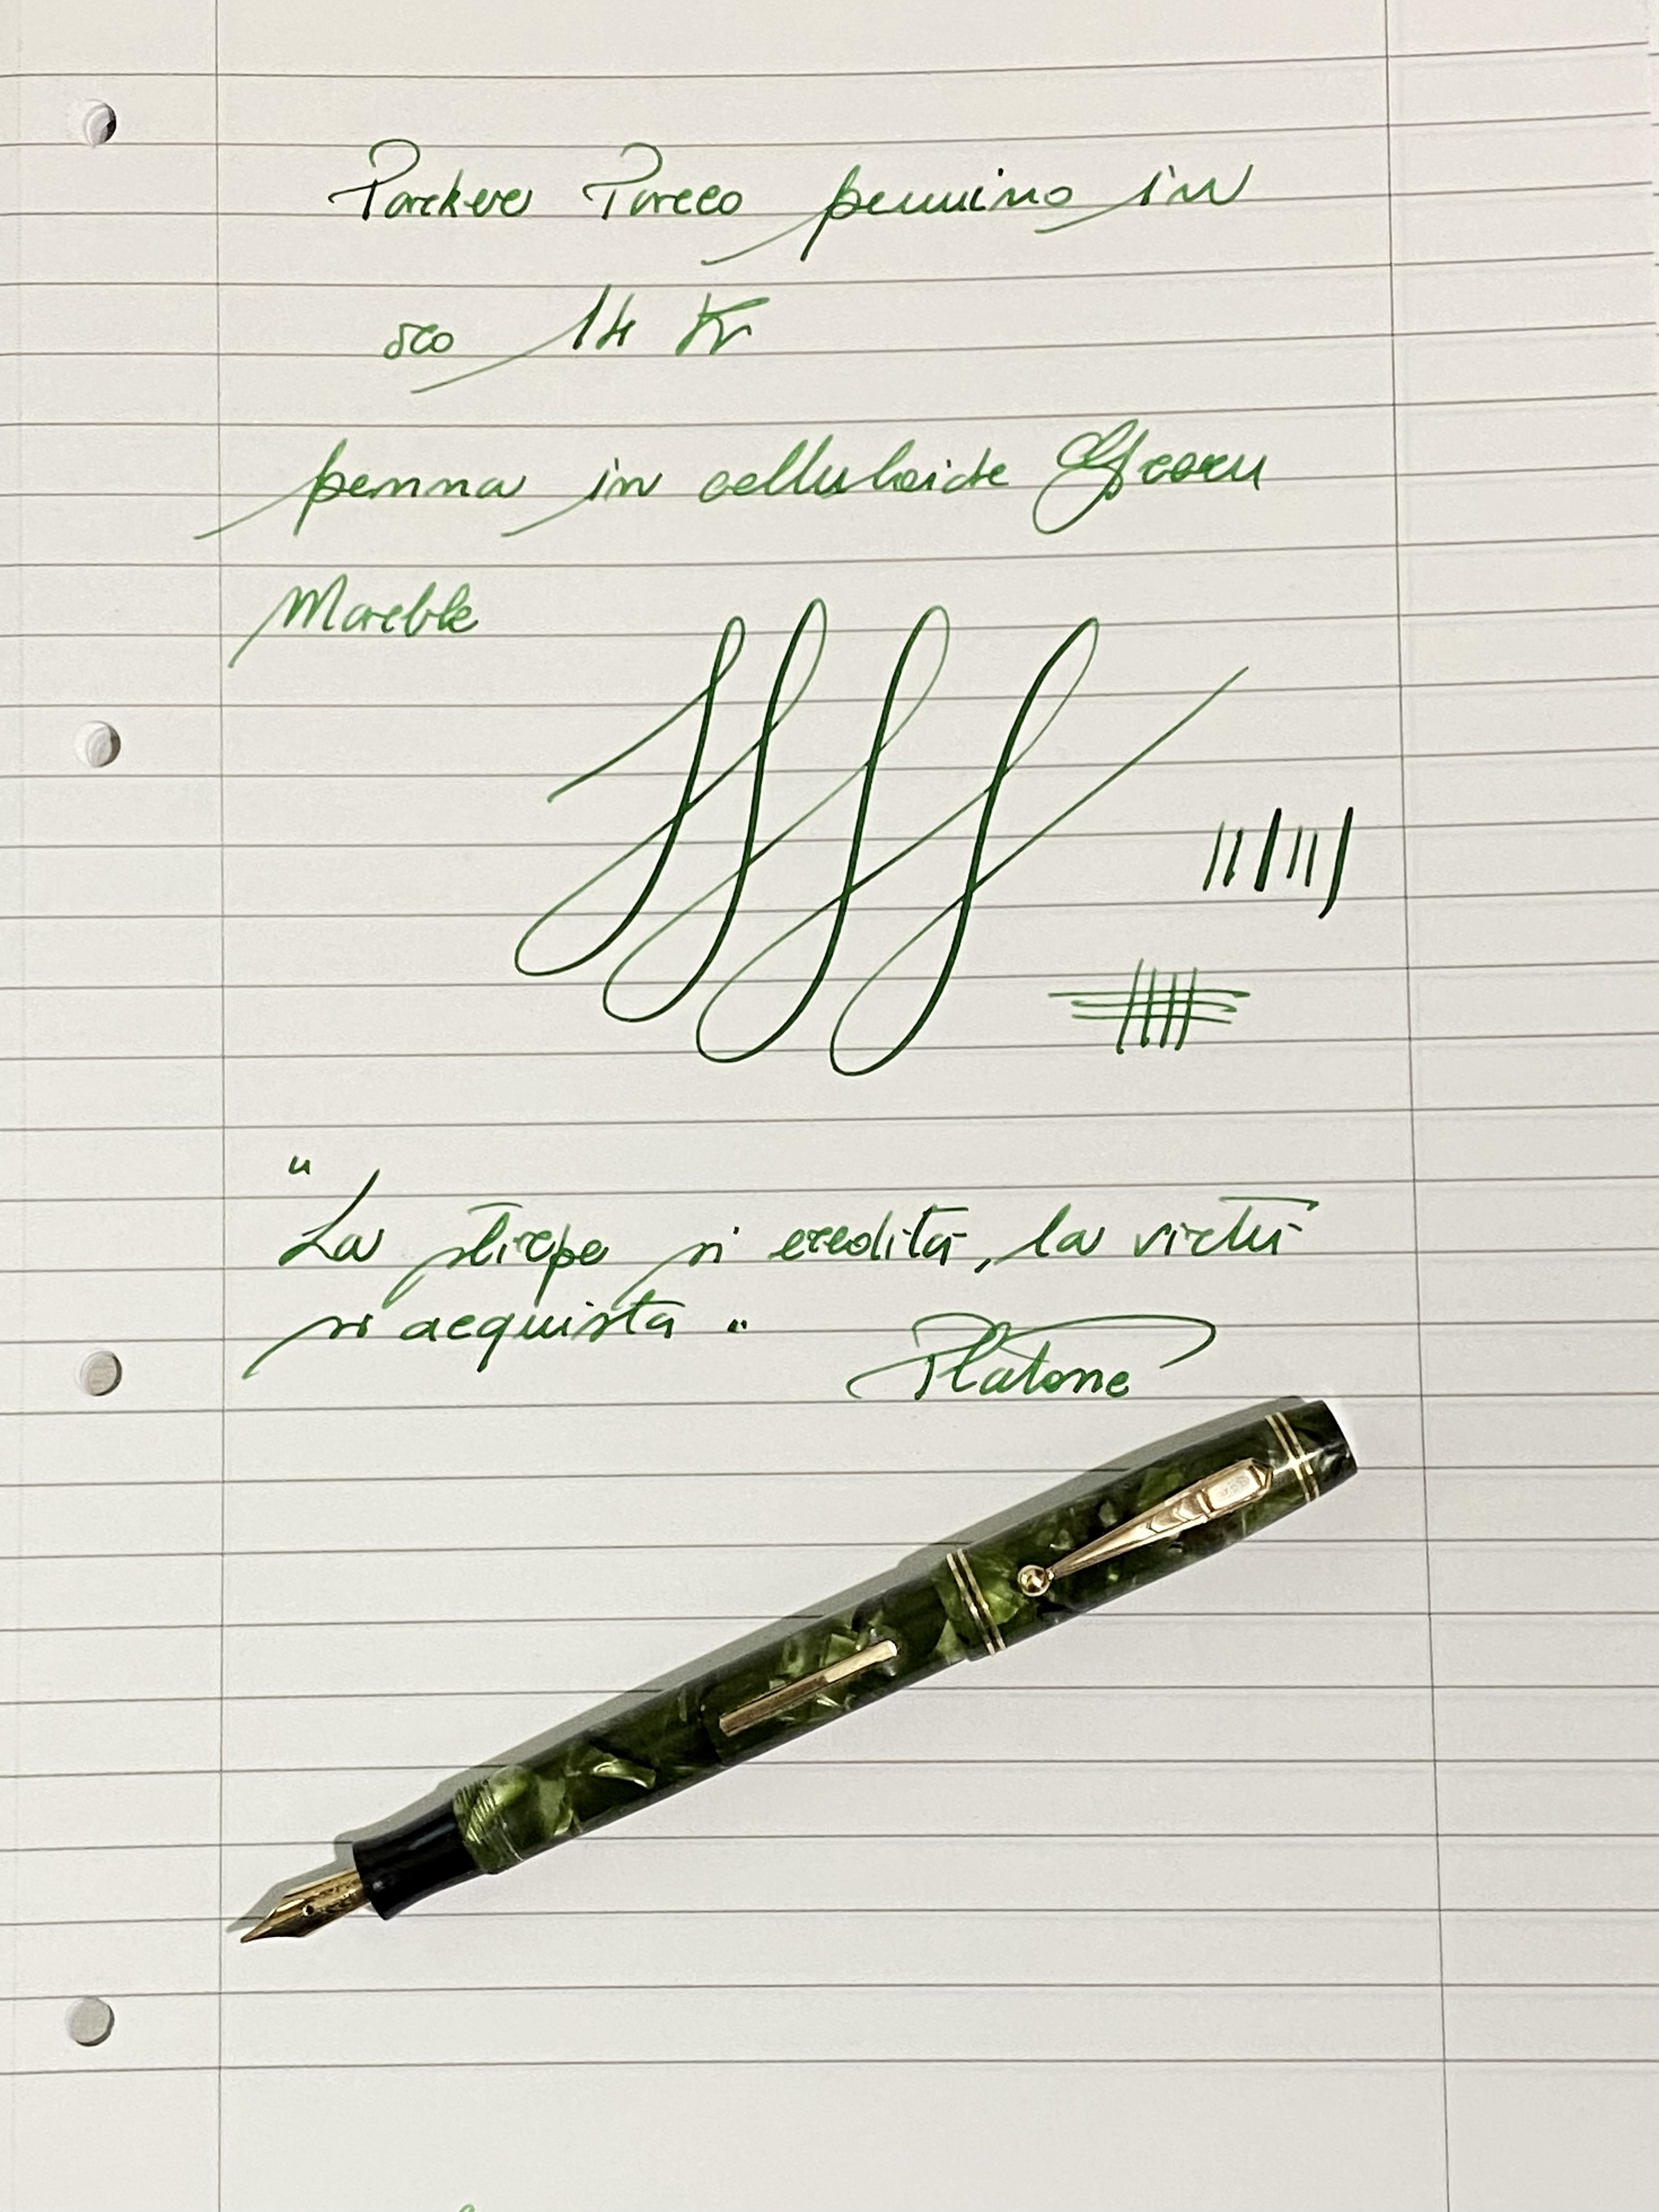 Parker Parco pennino in
oro 14 Kr
penna in celluloide Green
Marble
"La stirpe si eredita, la virtù
si acquista"
Platone